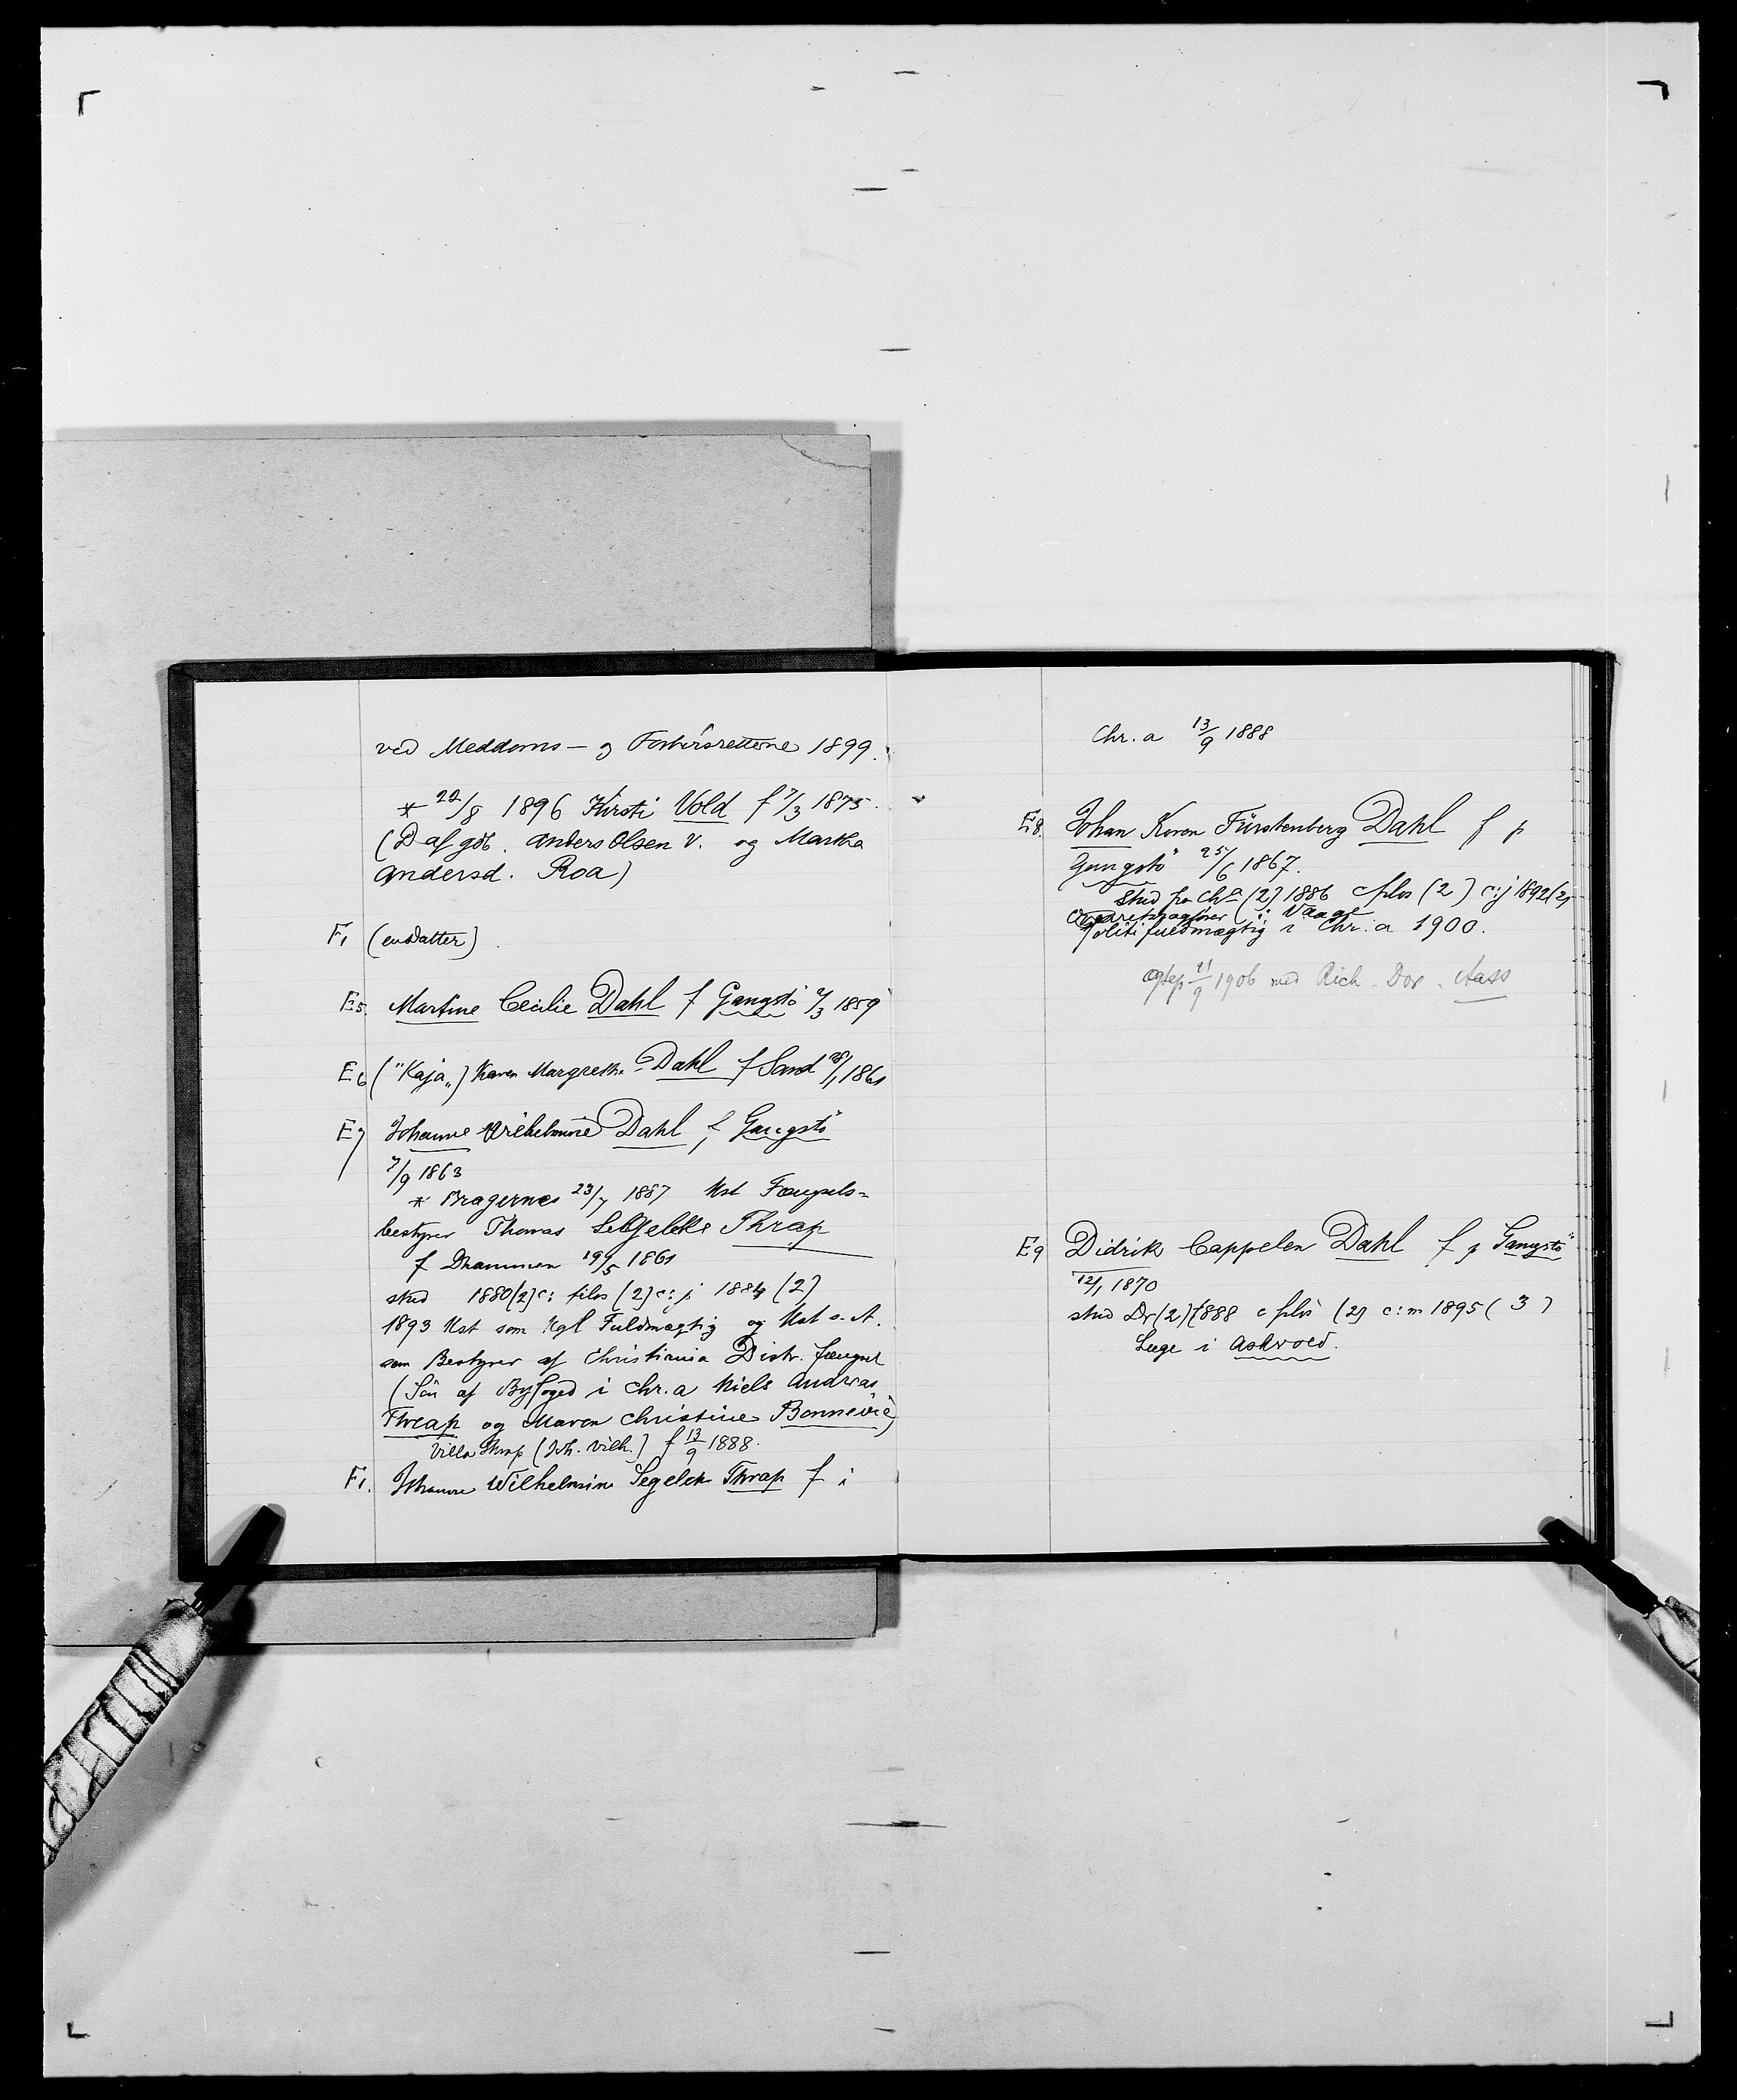 ved Meddoms- og Forhørsrettene 1899.
* 22/8 1896 Kirsti Vold f 7/3 1875.
(D af gdb. Anders Olsen V. og Martha
Andersd. Roa)
F1 (en datter)
E5. Martine Cecilie Dahl f Gangstø 4/3 1859
E6 ("Kaja") Karen Margrethe Dahl f Sand 28/1 1861
E7 Johanne Wilhelmine Dahl f Gangstø
7/9 1863
* Bragernes 23/7 1887 Kst Fængsels=
bestyrer Thomas Segelcke Thrap
f Drammen 19/5 1861
stud 1880(2) c: filos (2) c: j 1884 (2)
1893 Kst som Kgl Fuldmægtig og Kst s. A.
som Bestyrer af Christiania Distr. fængsel
(Søn af Byfoged i Chr.a Niels Andreas
Thrap og Maren Christine Bonnevie)
Villa Thrap (Joh. Vilh.) f 13/9 1888.
F1. Johanne Wilhelmine Segelck Thrap f i
Chr. a 13/9 1888
E8. Johan Koren Fürstenberg Dahl f p
Gangstø 25/6 1867.
stud fra Chra (2) 1886 c filos (2) c: j 1892 (2)
Overretssagfører i Vaage
Politifuldmægtig i Chr. a 1900.
21/9 1906 med Rich. Dor. Aass
E9 Didrik Cappelen Dahl f p Gangstø
12/1 1870
stud Dr (2) 1888 c filos (2) c: m 1895 (3)
Læge i Askvold.